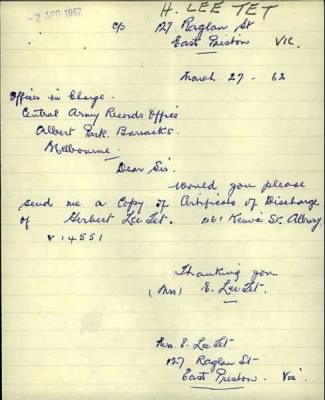 -2 APR 1962
H. LEE TET
c/o 127 Raglan St
East Preston VIC.
March 27 - 62
Officer in Charge.
Central Army Records Office
Albert Park Barracks.
Melbourne.
Dear Sir.
Would you please
send me a Copy of Certificate of Discharge
of Herbert Lee Tet. St. Albury
V 14551
Thanking you
(Mrs) E. Lee Tet.
Mrs. E. Lee Tet
127 Raglan St
East Preston. Vic.